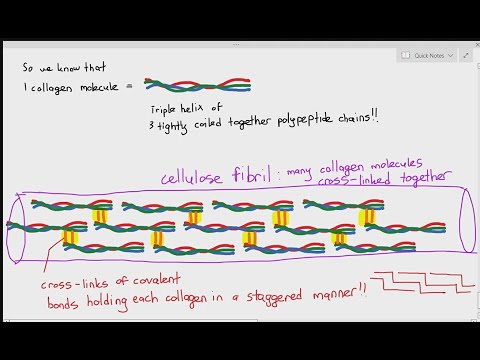 Quick Notes
So we know that
1 collagen molecule =
Triple helix of
3 tightly coiled together polypeptide chains!!
cellulose fibril: many collagen molecules
cross-linked together
cross-links of covalent
bonds holding each collagen in a staggered manner!!